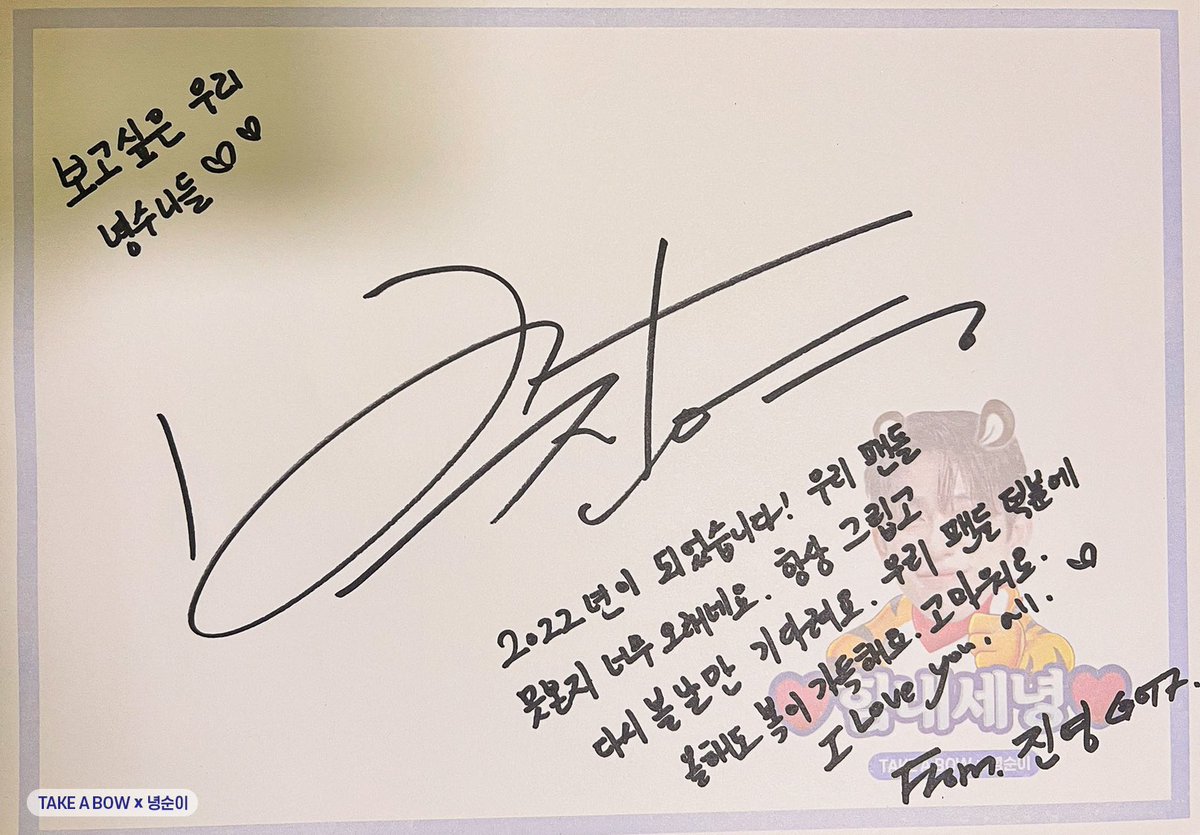 보고싶은 우리
녕수니들 ♡♡
2022년이 되었습니다! 우리 팬들
못본지 너무 오래네요. 항상 그립고
다시 볼 날만 기다려요. 우리 팬들 덕분에
올해도 복이 가득해요. 고마워요. ♡
I Love you. all.
From. 진영 GOT7.
힘내세녕
TAKE A BOW x 녕순이
TAKE A BOW x 녕순이